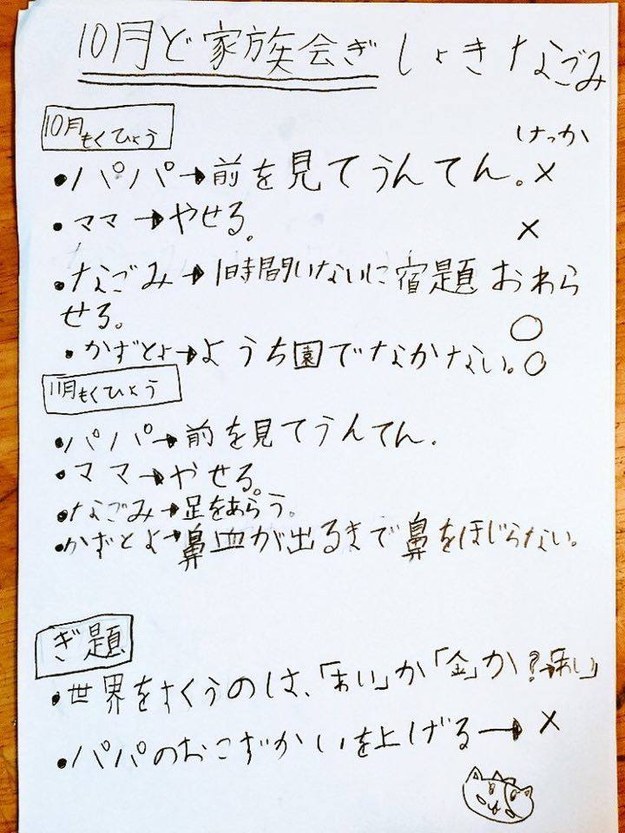 10月ど家族会ぎ しょき なごみ
10月もくひょう
けっか
・パパ→前を見てうんてん。×
・ママ→やせる。 ×
・なごみ→1時間いないに宿題おわら
せる。 ○
・かずとよ→ようち園でなかない。○
11月もくひょう
・パパ→前を見てうんてん.
・ママ→やせる。
・なごみ→足をあらう。
・かずとよ→鼻血が出るまで鼻をほじらない。
ぎ題
・世界をすくうのは、「あい」か「金」か?→あい
・パパのおこずかいを上げる→×